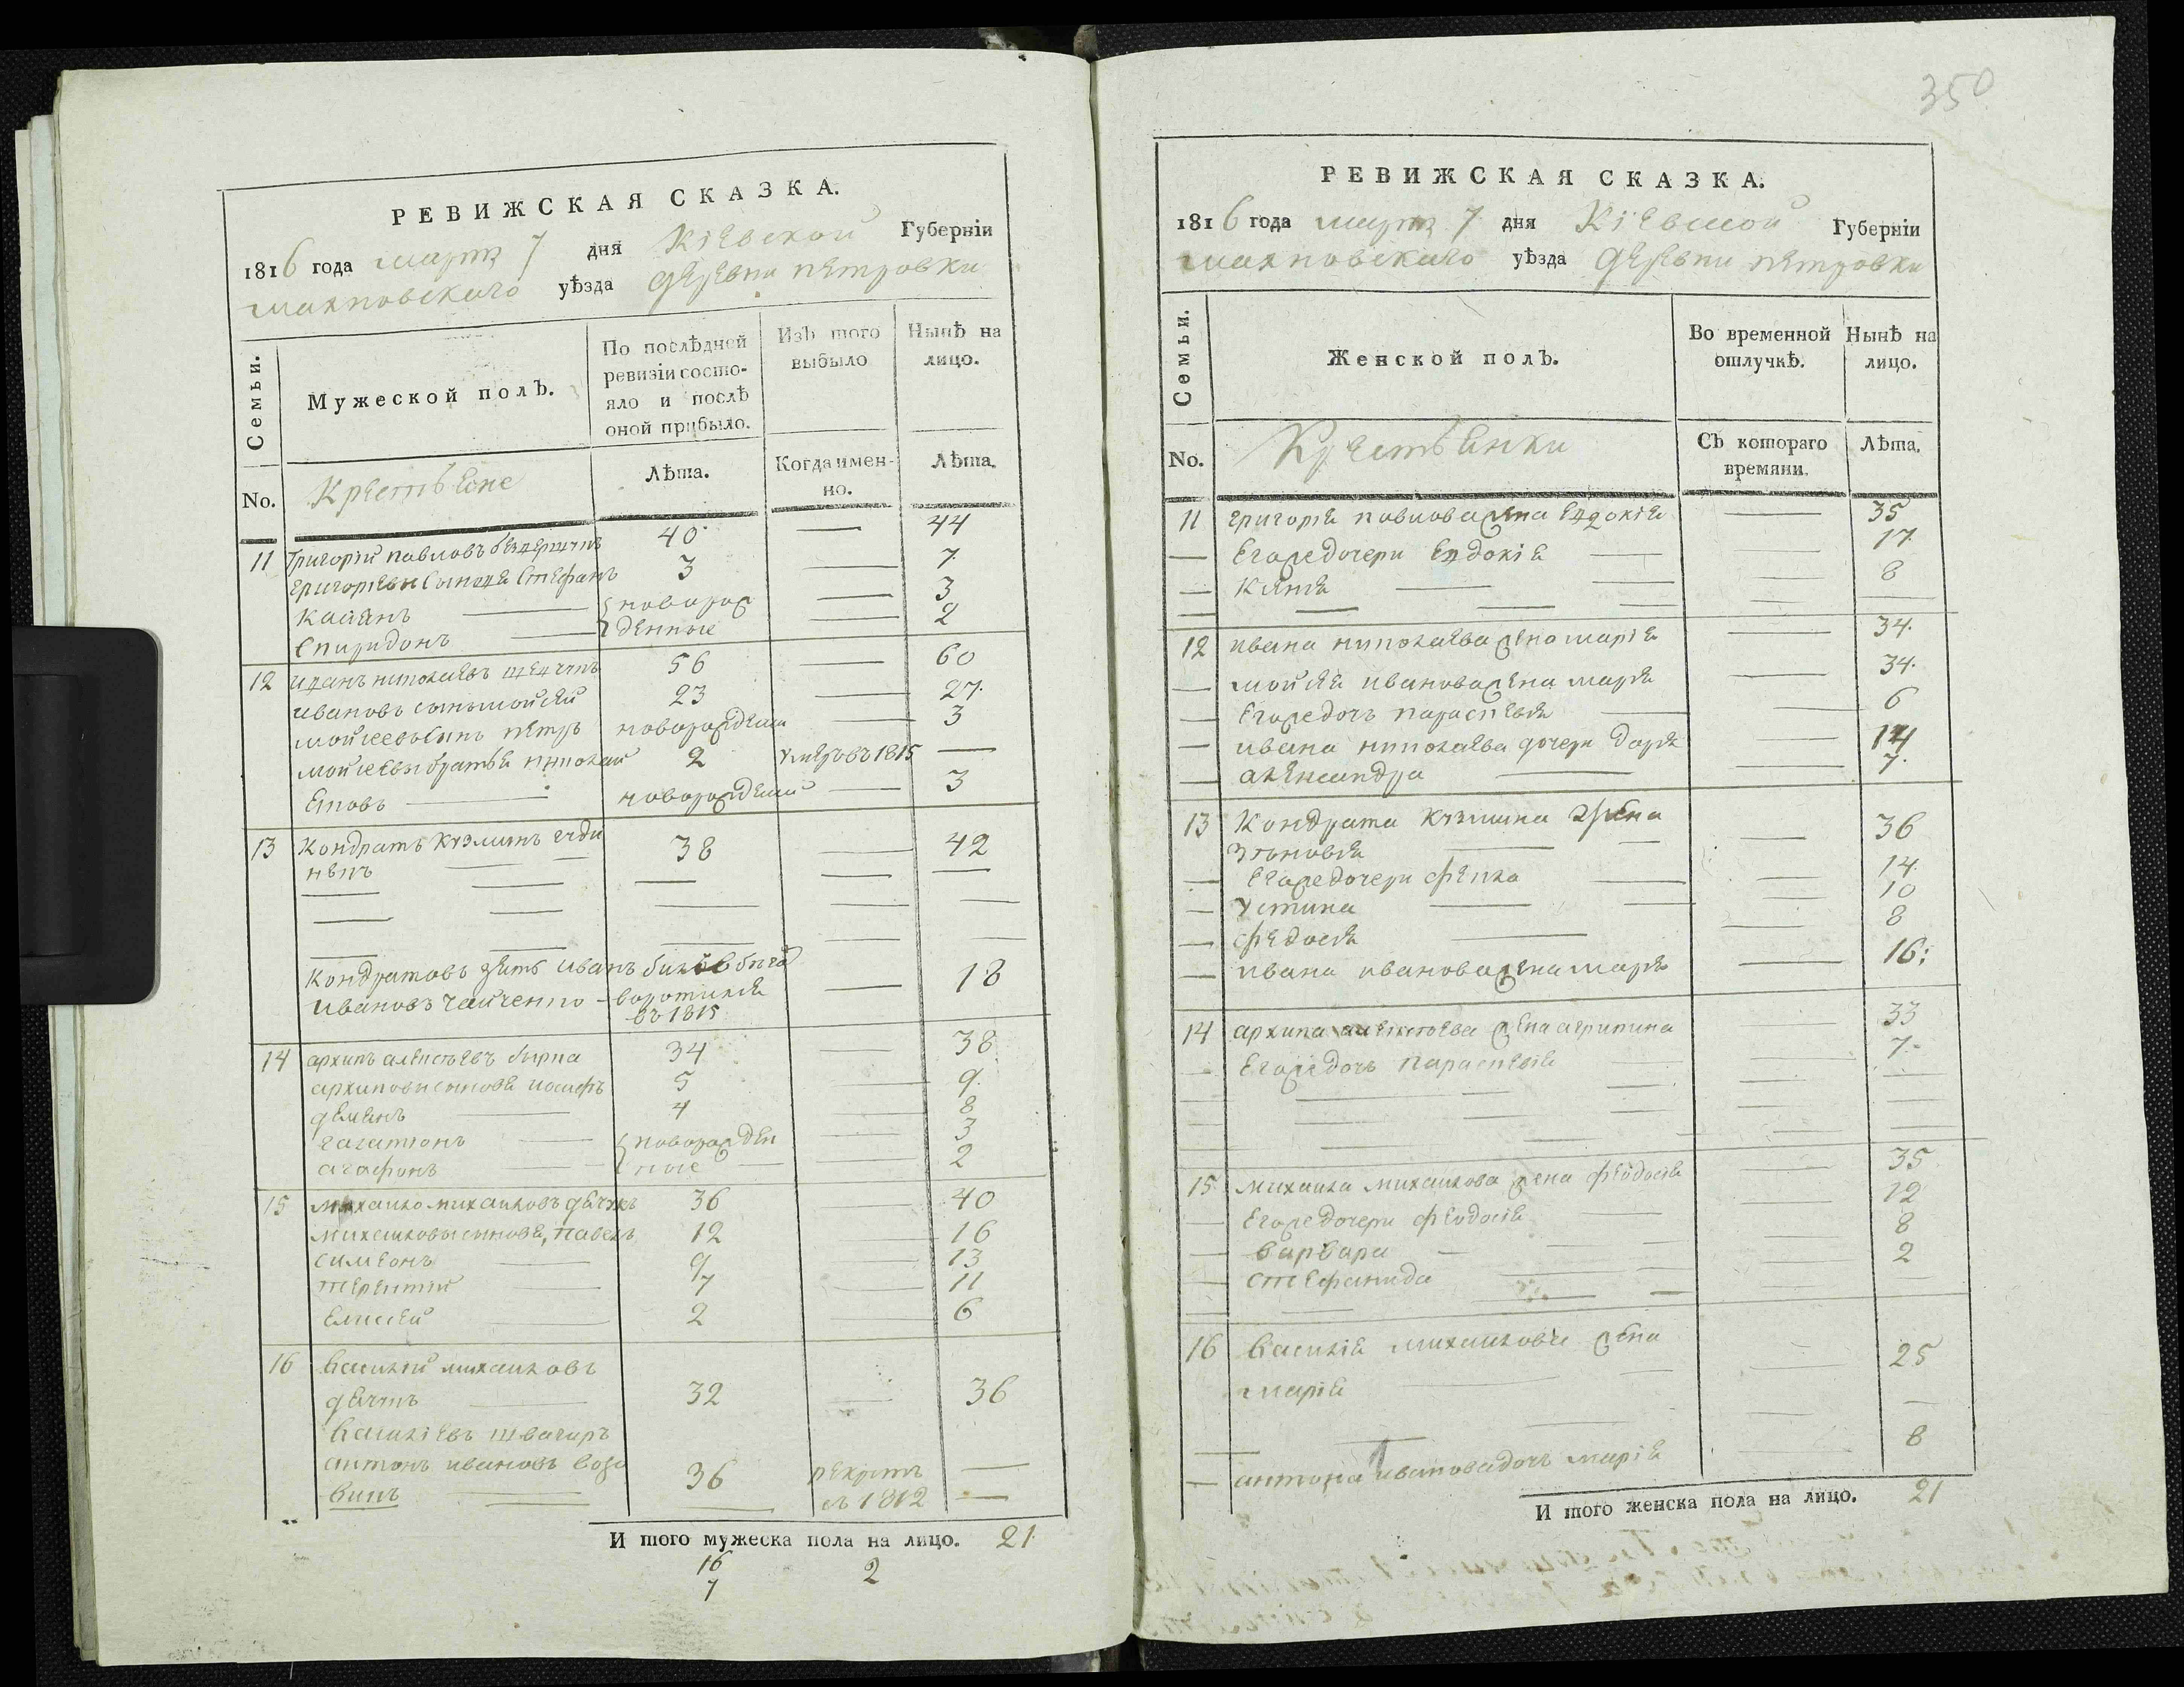 РЕВИЖСКАЯ СКАЗКА.
1816 года март 7 дня Кіевской Губерніи
махновскаго уѣзда деревни петровки
Семьи.
Мужеской полъ.
По послѣдней
ревизіи состо-
яло и послѣ
оной прибыло.
Изъ того
выбыло
Нынѣ на
лицо.
No.
Крестьяне
Лѣта.
Когда имен-
но.
Лѣта.
11 Григорій павловъ 40 44
григорьевы сыновя Стефанъ 3 7
Касянъ новорож 3
Спиридонъ денные 2
12 иванъ николаевъ 56 60
ивановъ сынъ мойсей 23 27
мойсеевъ сынъ петръ новорожденный 3
мойсеевы братья николай 2 умеръ въ 1815
новорожденный 3
13 Кондратъ кузминъ 38 42
Кондратовъ зять иванъ
ивановъ въ 1815 18
14 архипъ алексѣевъ 34 38
архиповы сыновя иосифъ 5 9
демянъ 4 8
галатіонъ новорожден 3
агафонъ ные 2
15 михайло михайловъ 36 40
михайловы сыновя, павелъ 12 16
симеонъ 9 13
терентий 7 11
елисей 2 6
16 Василий михайловъ
32 36
Василіевъ швагиръ
антонъ ивановъ 36 рекрутъ
въ 1812
И того мужеска пола на лицо. 21
16 2
7
350
РЕВИЖСКАЯ СКАЗКА.
1816 года март 7 дня Кіевской Губерніи
махновскаго уѣзда деревни петровки
Семьи.
Женской полъ.
Во временной
отлучкѣ.
Нынѣ на
лицо.
No.
Крестьянки
Съ котораго
времяни.
Лѣта.
11 григорія павлова жена евдокія 35
Его же дочери евдокія 17
8
12 ивана николаева жена марія 34
мойсея иванова жена марія 34
Его же дочь параскевія 6
ивана николаева дочери дарія 14
александра 7
13 Кондрата кузмина жена
зѣновія 36
Его же дочери 14
устина 10
федосія 8
ивана иванова жена марія 16
14 архипа алексѣева жена агрипина 33
Его же дочь параскевія 7
15 михайла михайлова жена феодосія 35
Его же дочери феодосія 12
варвара 8
стефанида 2
16 Василія михайлова жена
марія 25
антона иванова дочь марія 8
И того женска пола на лицо. 21